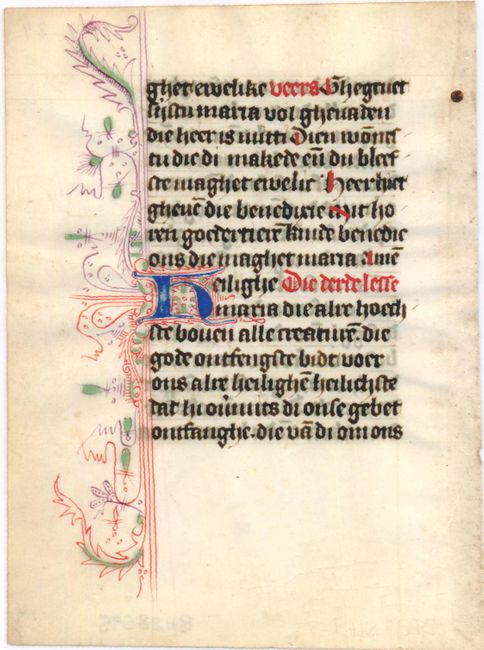 ghet ewelike veers Ghegruet
sijstu maria vol ghenaden
die heer is mitti Dien wōnes
tu die di makede eñ du bleef
ste maghet ewelic Heer hiet
gheuē die benedixie Mit ho
ren goedertierē kinde benedie
ons die maghet maria Amē
Heilighe Die derde lesse
maria die alre hoech
ste bouen alle creaturē. die
gode ontfengste bidt voer
ons alre heilighē heilichste
dat hi ouermits di onse gebet
ontfanghe. die vā di om ons